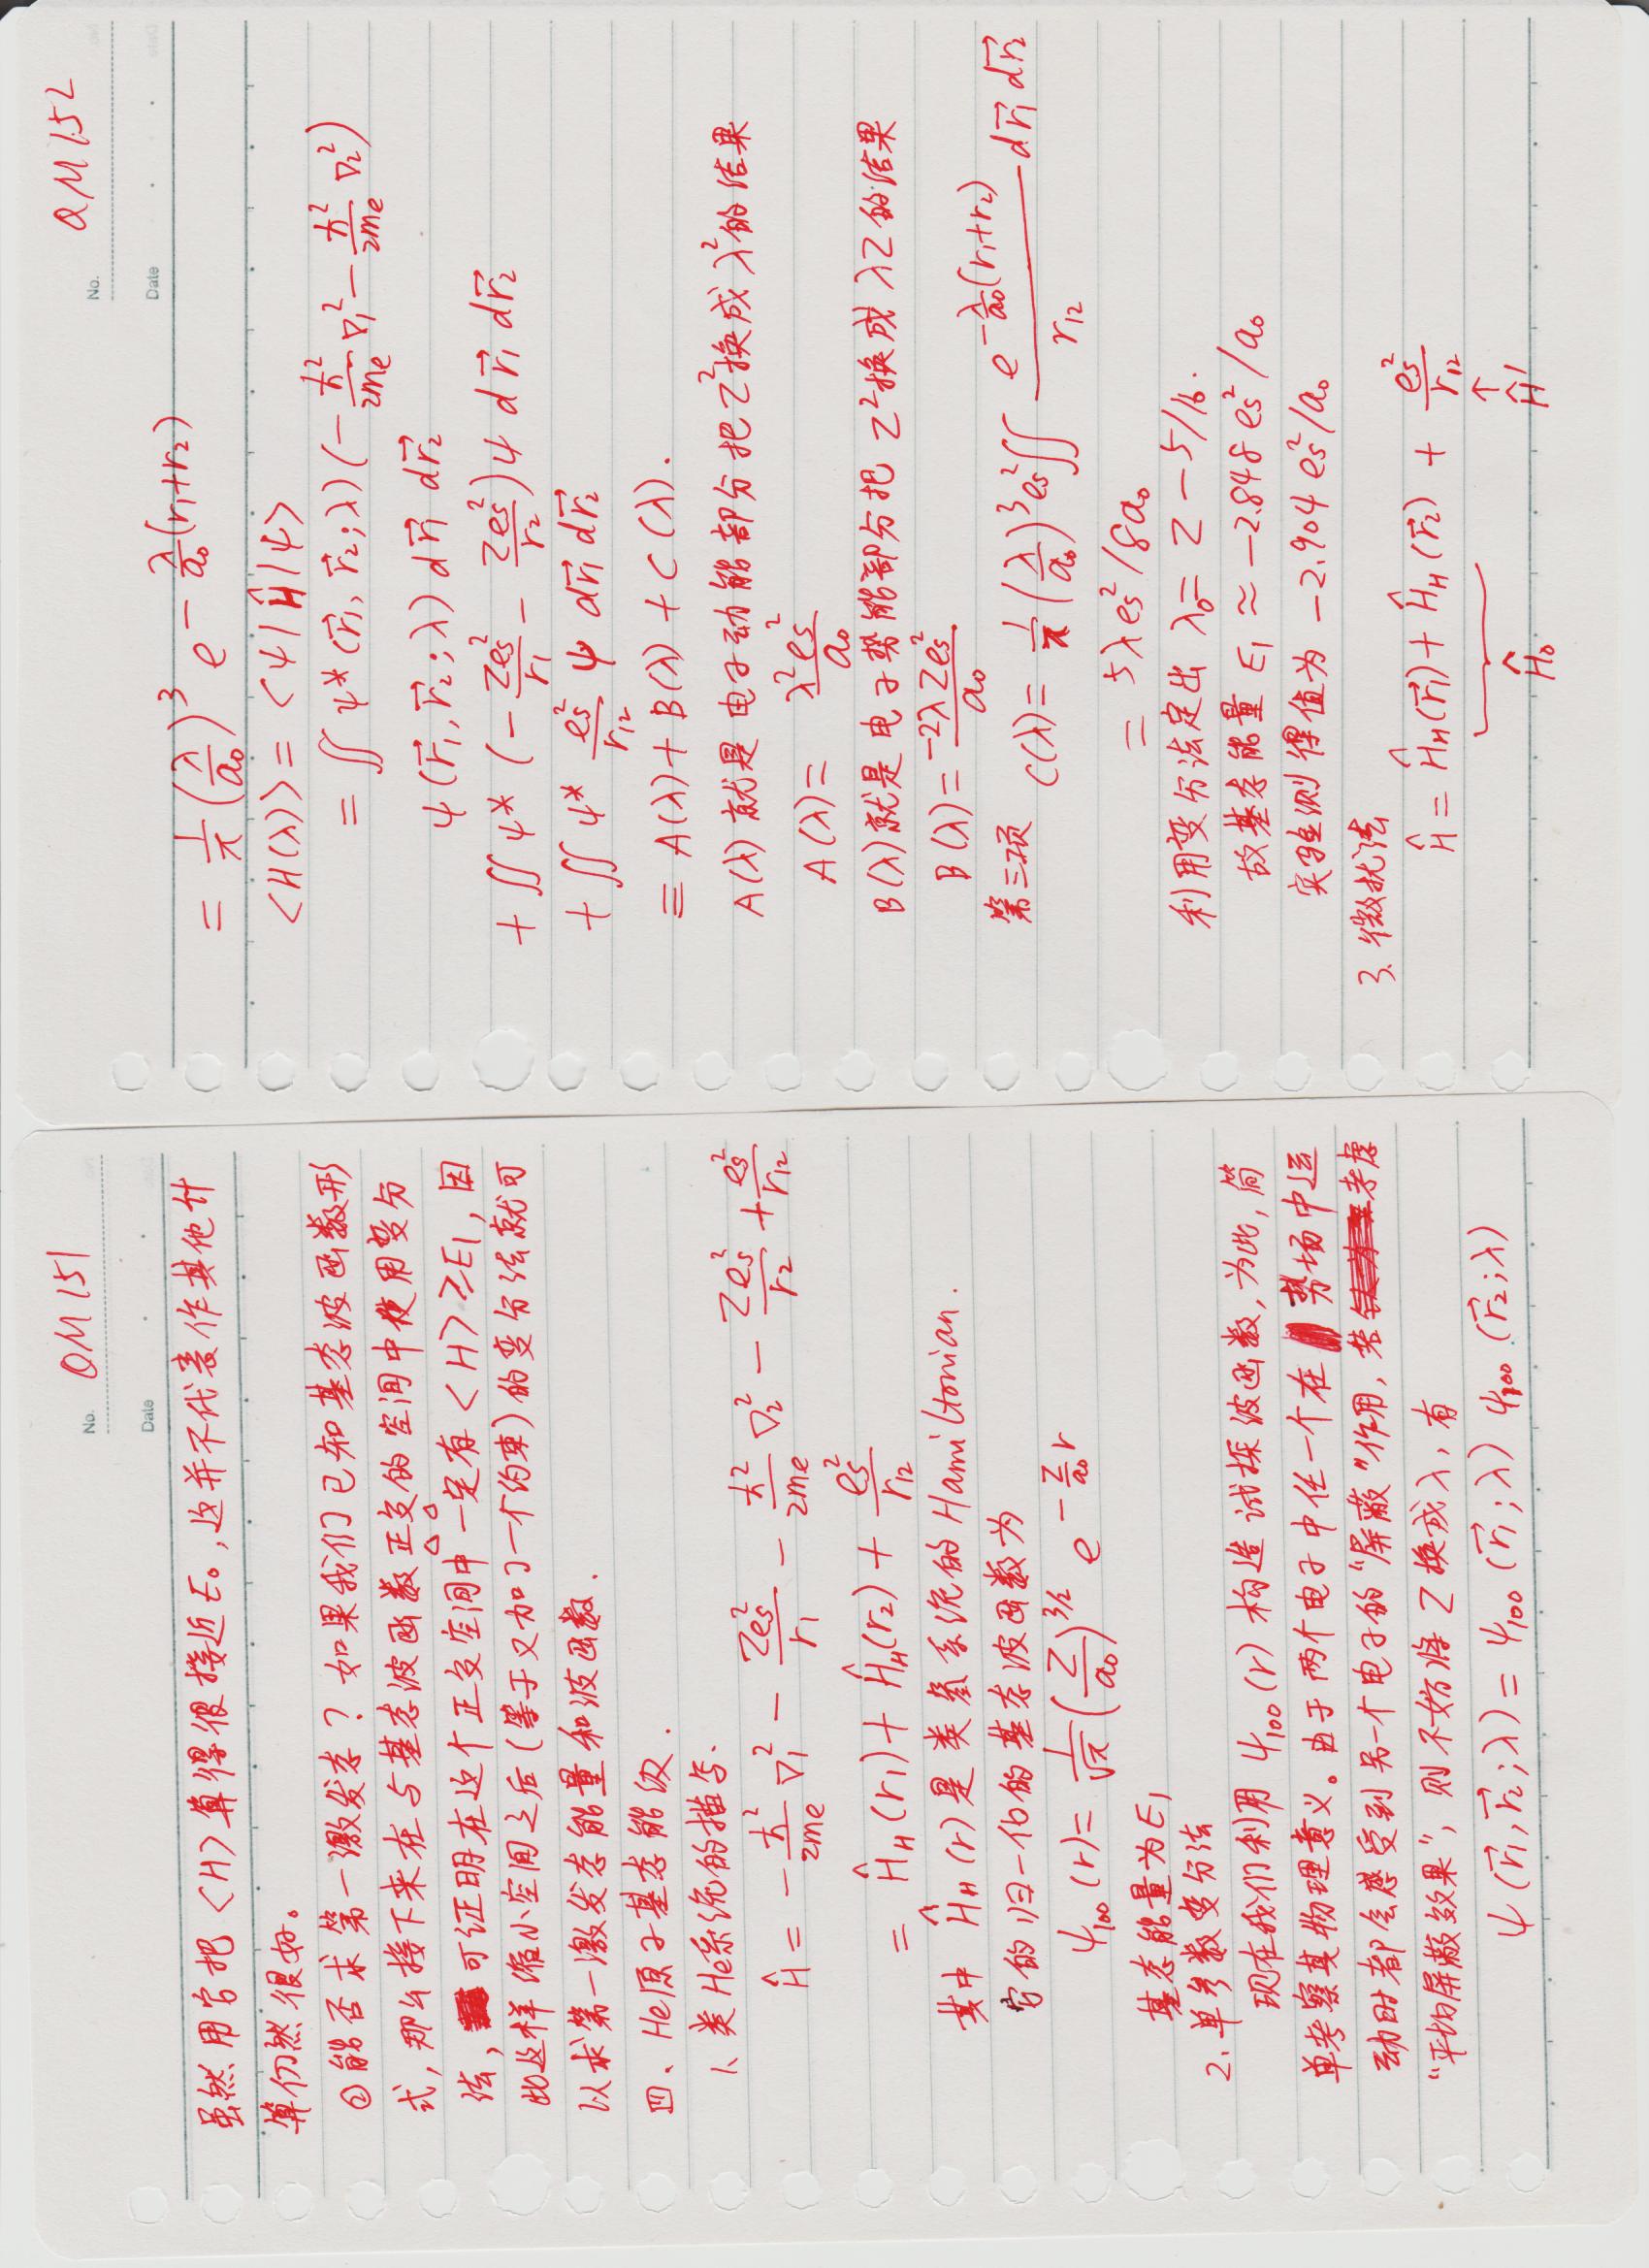 No. QM 151
Date
虽然用它把〈H〉算得很接近E₀,这并不代表作其他计
算仍然很好。
②能否求第一激发态?如果我们已知基态波函数形
式,那么接下来在与基态波函数正交的空间中使用变分
法,可证明在这个正交空间中一定有〈H〉≥E₁,因
此这样缩小空间之后(等于又加了一个约束)的变分法就可
以求第一激发态能量和波函数.
四、He原子基态能级.
1、类He系统的描写.
Ĥ = -ħ²/2me ∇₁² - Zes²/r₁ - ħ²/2me ∇₂² - Zes²/r₂ + es²/r₁₂
= Ĥ_H(r₁) + Ĥ_H(r₂) + es²/r₁₂
其中 Ĥ_H(r)是类氢系统的Hamiltonian.
它的归一化的基态波函数为
ψ₁₀₀(r) = 1/√π (Z/a₀)^3/2 e^{-Z/a₀ r}
基态能量为E₁
2、单参数变分法
现在我们利用 ψ₁₀₀(r) 构造试探波函数,为此,简
单考察其物理意义。由于两个电子中任一个在势场中运
动时都会感受到另一个电子的“屏蔽”作用,若考虑
“平均屏蔽效果”,则不妨将Z换成λ,有
ψ(r⃗₁,r⃗₂;λ) = ψ₁₀₀(r⃗₁;λ) ψ₁₀₀(r⃗₂;λ)
No. QM 152
Date
= 1/π (λ/a₀)³ e^{-λ/a₀(r₁+r₂)}
〈H(λ)〉= 〈ψ|Ĥ|ψ〉
= ∬ ψ*(r⃗₁,r⃗₂;λ)(-ħ²/2me ∇₁² - ħ²/2me ∇₂²)
ψ(r⃗₁,r⃗₂;λ) dr⃗₁ dr⃗₂
+ ∬ ψ* (-Zes²/r₁ - Zes²/r₂) ψ dr⃗₁ dr⃗₂
+ ∬ ψ* es²/r₁₂ ψ dr⃗₁ dr⃗₂
≡ A(λ) + B(λ) + C(λ).
A(λ)就是电子动能部分把Z²换成λ²的结果
A(λ) = λ²es²/a₀
B(λ)就是电子势能部分把Z²换成λZ的结果
B(λ) = -2λZes²/a₀
第三项 C(λ) = 1/π (λ/a₀)³ es² ∬ e^{-λ/a₀(r₁+r₂)}/r₁₂ dr⃗₁ dr⃗₂
= 5λes²/8a₀
利用变分法定出 λ₀ = Z - 5/16.
故基态能量 E₁ ≈ -2.848 es²/a₀
实验测得值为 -2.904 es²/a₀
3、微扰法
Ĥ = Ĥ_H(r⃗₁) + Ĥ_H(r⃗₂) + es²/r₁₂
Ĥ₀ Ĥ′